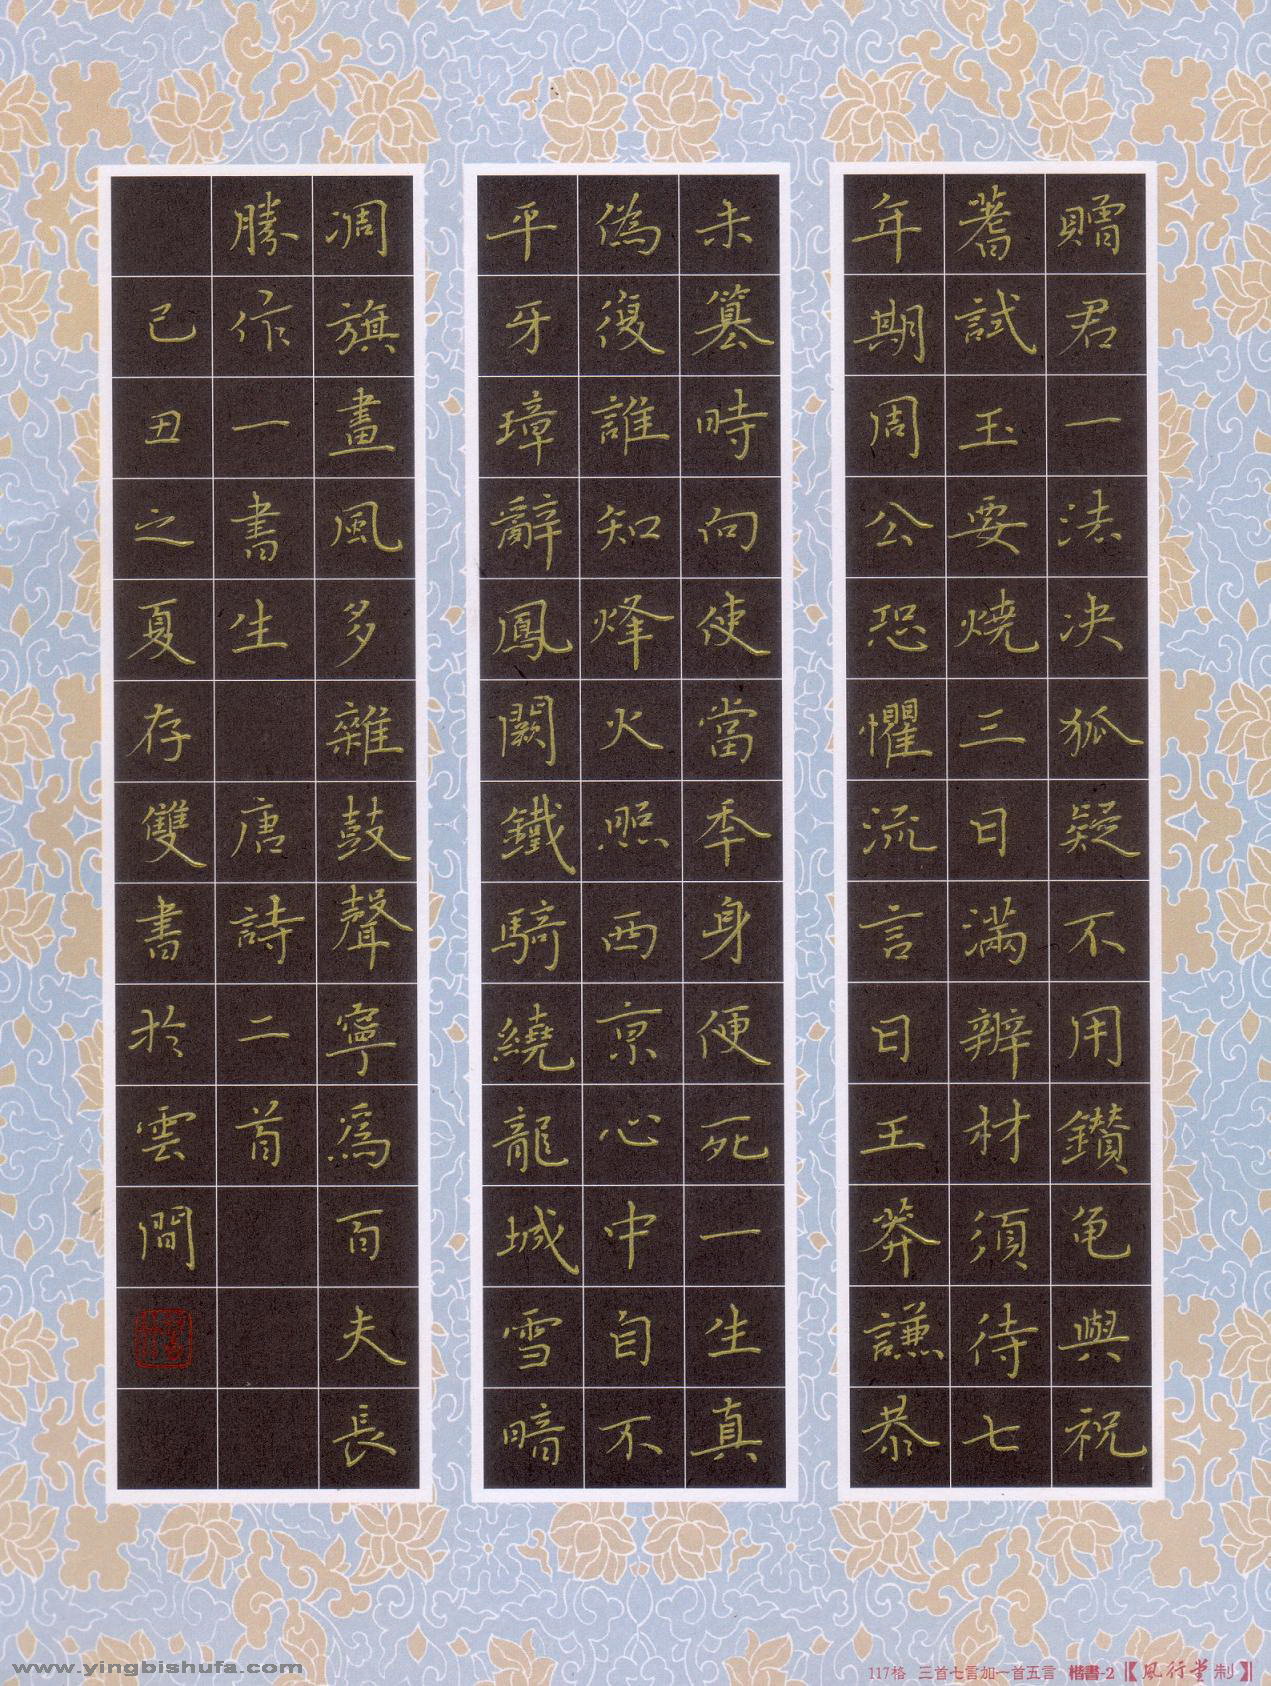 贈君一法決狐疑不用鑽龜與祝
蓍試玉要燒三日滿辨材須待七
年期周公恐懼流言日王莽謙恭
未篡時向使當年身便死一生真
偽復誰知烽火照西京心中自不
平牙璋辭鳳闕鐵騎繞龍城雪暗
凋旗畫風多雜鼓聲寧爲百夫長
勝作一書生 唐詩二首
己丑之夏存雙書於雲間
www.yingbishufa.com
117格 三首七言加一首五言 楷書-2【風行堂制】